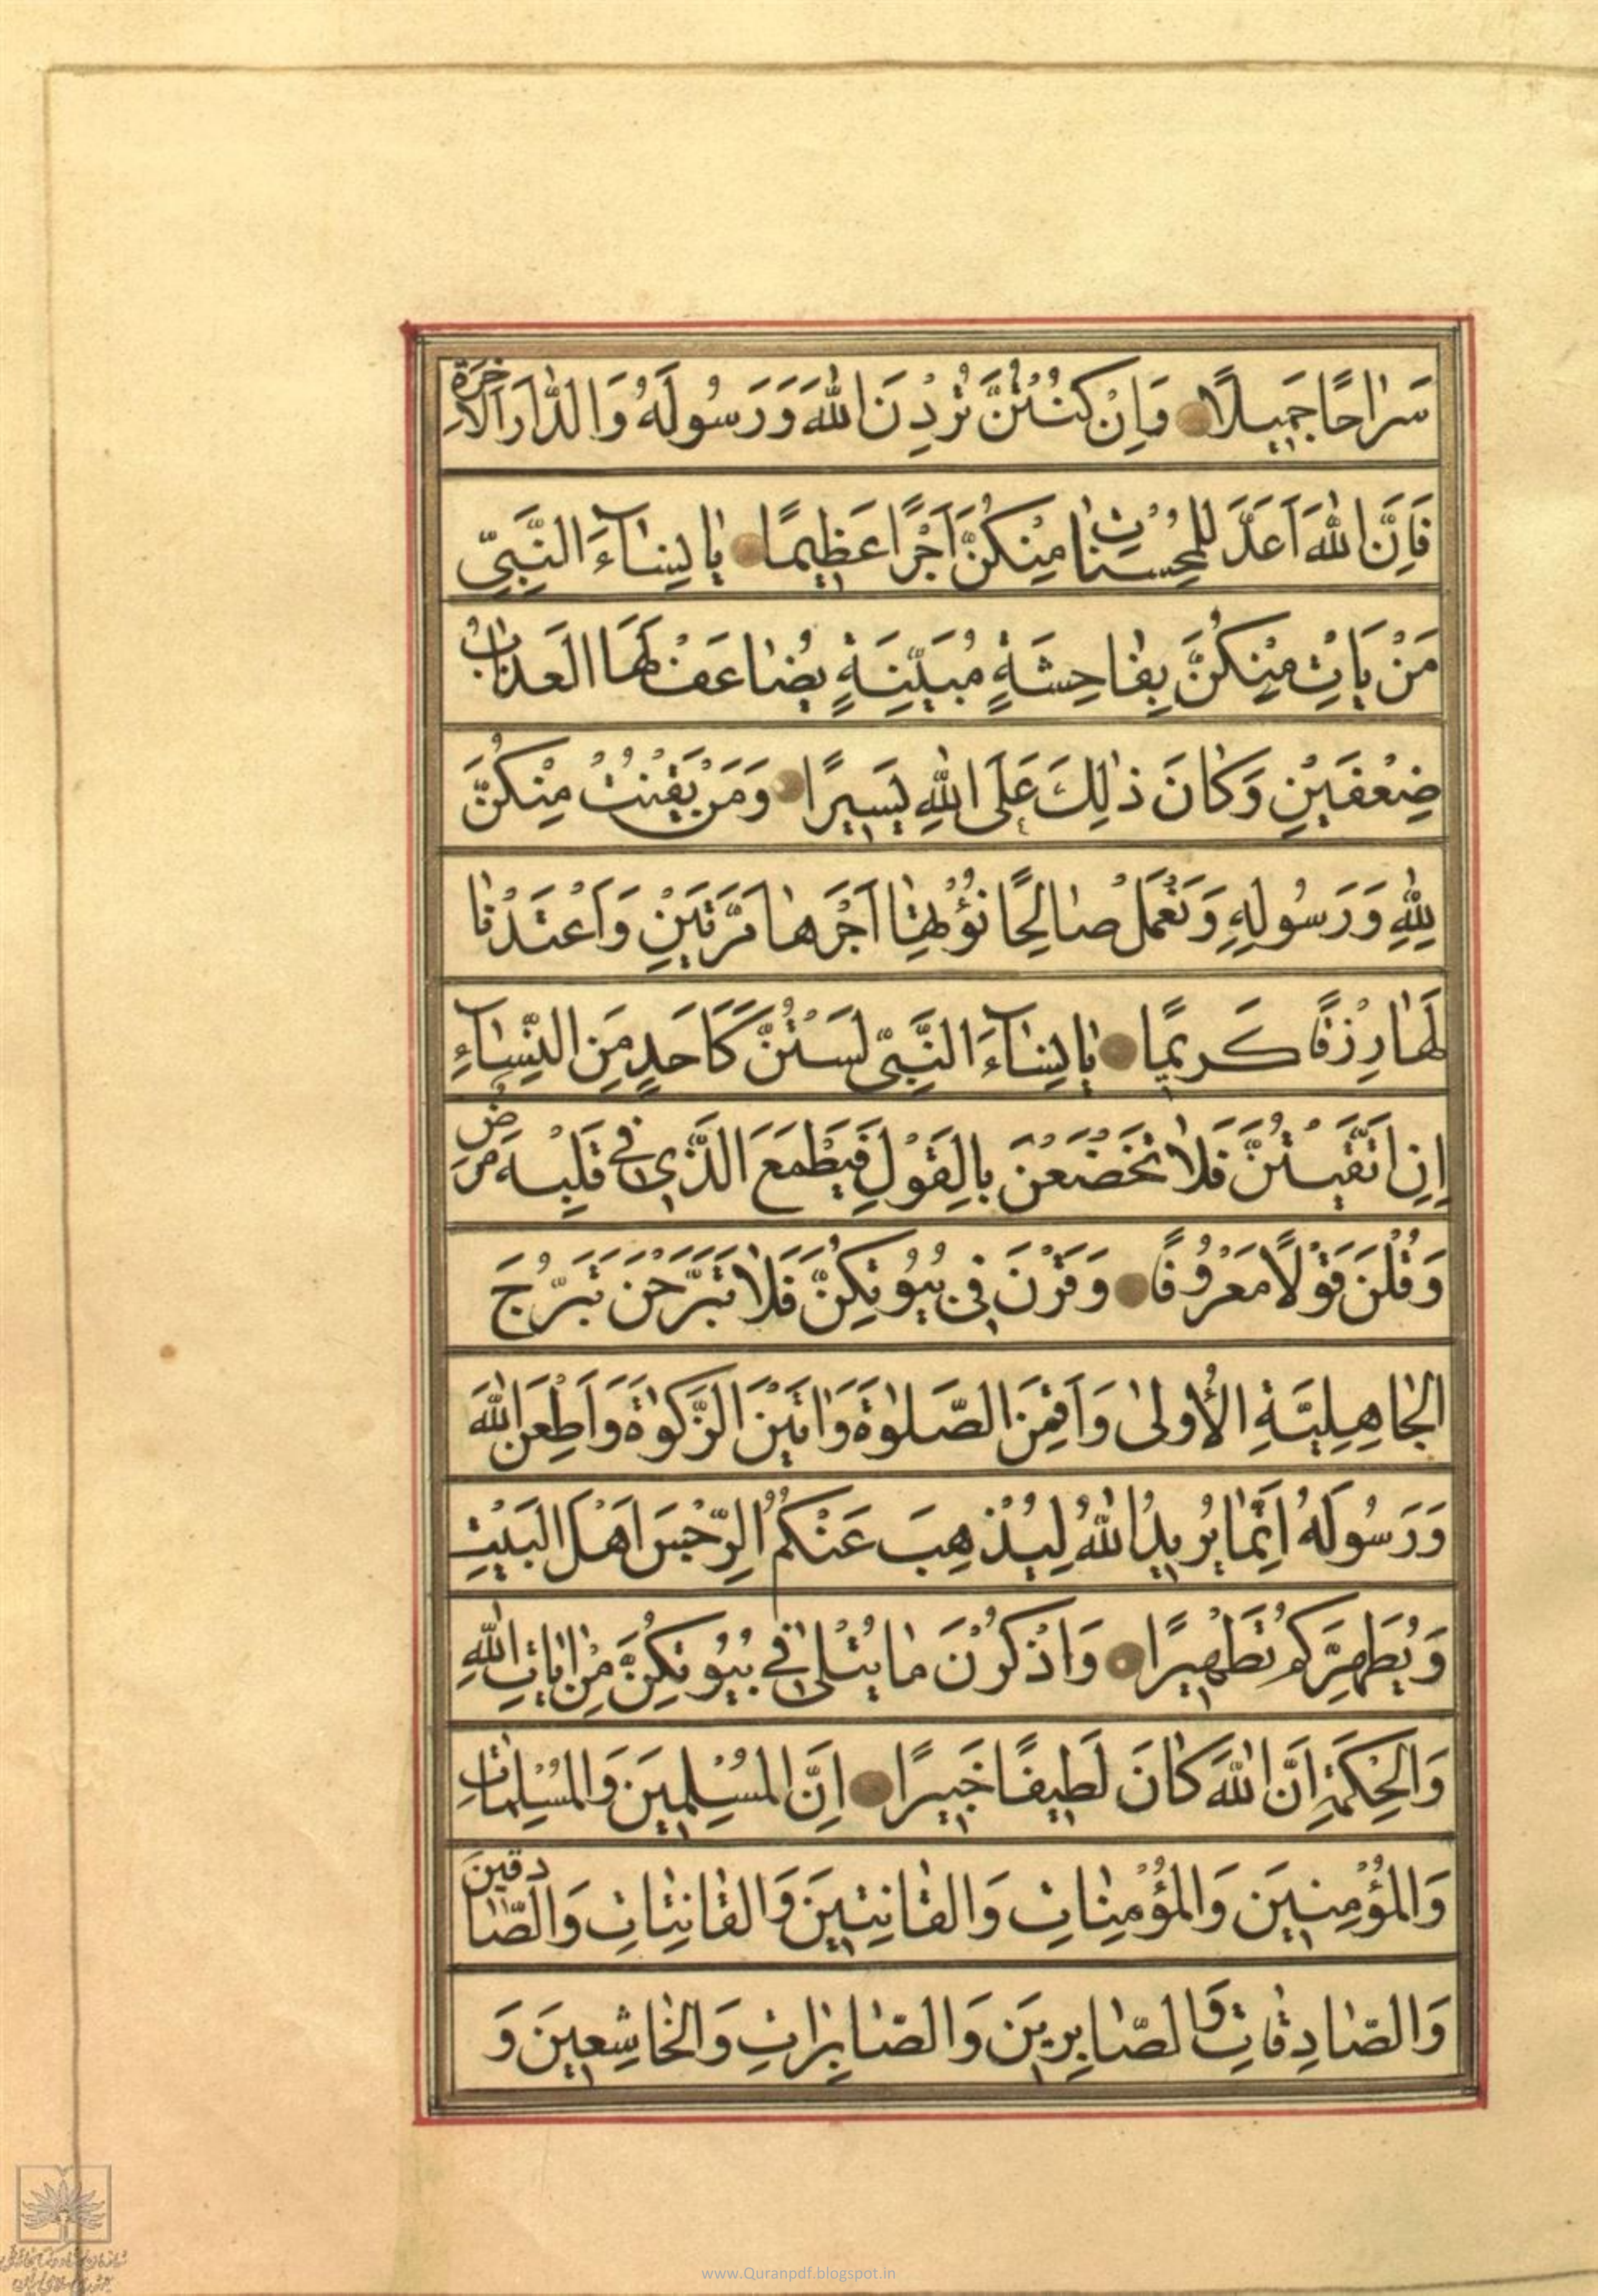 سَرٰاحًا جَمٖيلًا وَاِنْ كُنْتُنَّ تُرِدْنَ اللّٰهَ وَرَسُولَهُ وَالدّٰارَ الْاٰخِرَةَ
فَاِنَّ اللّٰهَ اَعَدَّ لِلْمُحْسِنٰاتِ مِنْكُنَّ اَجْرًا عَظٖيمًا يٰا نِسٰاۤءَ النَّبِىِّ
مَنْ يَاْتِ مِنْكُنَّ بِفٰاحِشَةٍ مُبَيِّنَةٍ يُضٰاعَفْ لَهَا الْعَذٰابُ
ضِعْفَيْنِ وَكٰانَ ذٰلِكَ عَلَى اللّٰهِ يَسٖيرًا وَمَنْ يَقْنُتْ مِنْكُنَّ
لِلّٰهِ وَرَسُولِهِ وَتَعْمَلْ صٰالِحًا نُؤْتِهٰا اَجْرَهٰا مَرَّتَيْنِ وَاَعْتَدْنٰا
لَهٰا رِزْقًا كَرٖيمًا يٰا نِسٰاۤءَ النَّبِىِّ لَسْتُنَّ كَاَحَدٍ مِنَ النِّسٰاۤءِ
اِنِ اتَّقَيْتُنَّ فَلٰا تَخْضَعْنَ بِالْقَوْلِ فَيَطْمَعَ الَّذٖى فٖى قَلْبِهِ مَرَضٌ
وَقُلْنَ قَوْلًا مَعْرُوفًا وَقَرْنَ فٖى بُيُوتِكُنَّ فَلٰا تَبَرَّجْنَ تَبَرُّجَ
الْجٰاهِلِيَّةِ الْاُولٰى وَاَقِمْنَ الصَّلٰوةَ وَاٰتٖينَ الزَّكٰوةَ وَاَطِعْنَ اللّٰهَ
وَرَسُولَهُ اِنَّمٰا يُرٖيدُ اللّٰهُ لِيُذْهِبَ عَنْكُمُ الرِّجْسَ اَهْلَ الْبَيْتِ
وَيُطَهِّرَكُمْ تَطْهٖيرًا وَاذْكُرْنَ مٰا يُتْلٰى فٖى بُيُوتِكُنَّ مِنْ اٰيٰاتِ اللّٰهِ
وَالْحِكْمَةِ اِنَّ اللّٰهَ كٰانَ لَطٖيفًا خَبٖيرًا اِنَّ الْمُسْلِمٖينَ وَالْمُسْلِمٰاتِ
وَالْمُؤْمِنٖينَ وَالْمُؤْمِنٰاتِ وَالْقٰانِتٖينَ وَالْقٰانِتٰاتِ وَالصّٰادِقٖينَ
وَالصّٰادِقٰاتِ وَالصّٰابِرٖينَ وَالصّٰابِرٰاتِ وَالْخٰاشِعٖينَ وَ
www.Quranpdf.blogspot.in